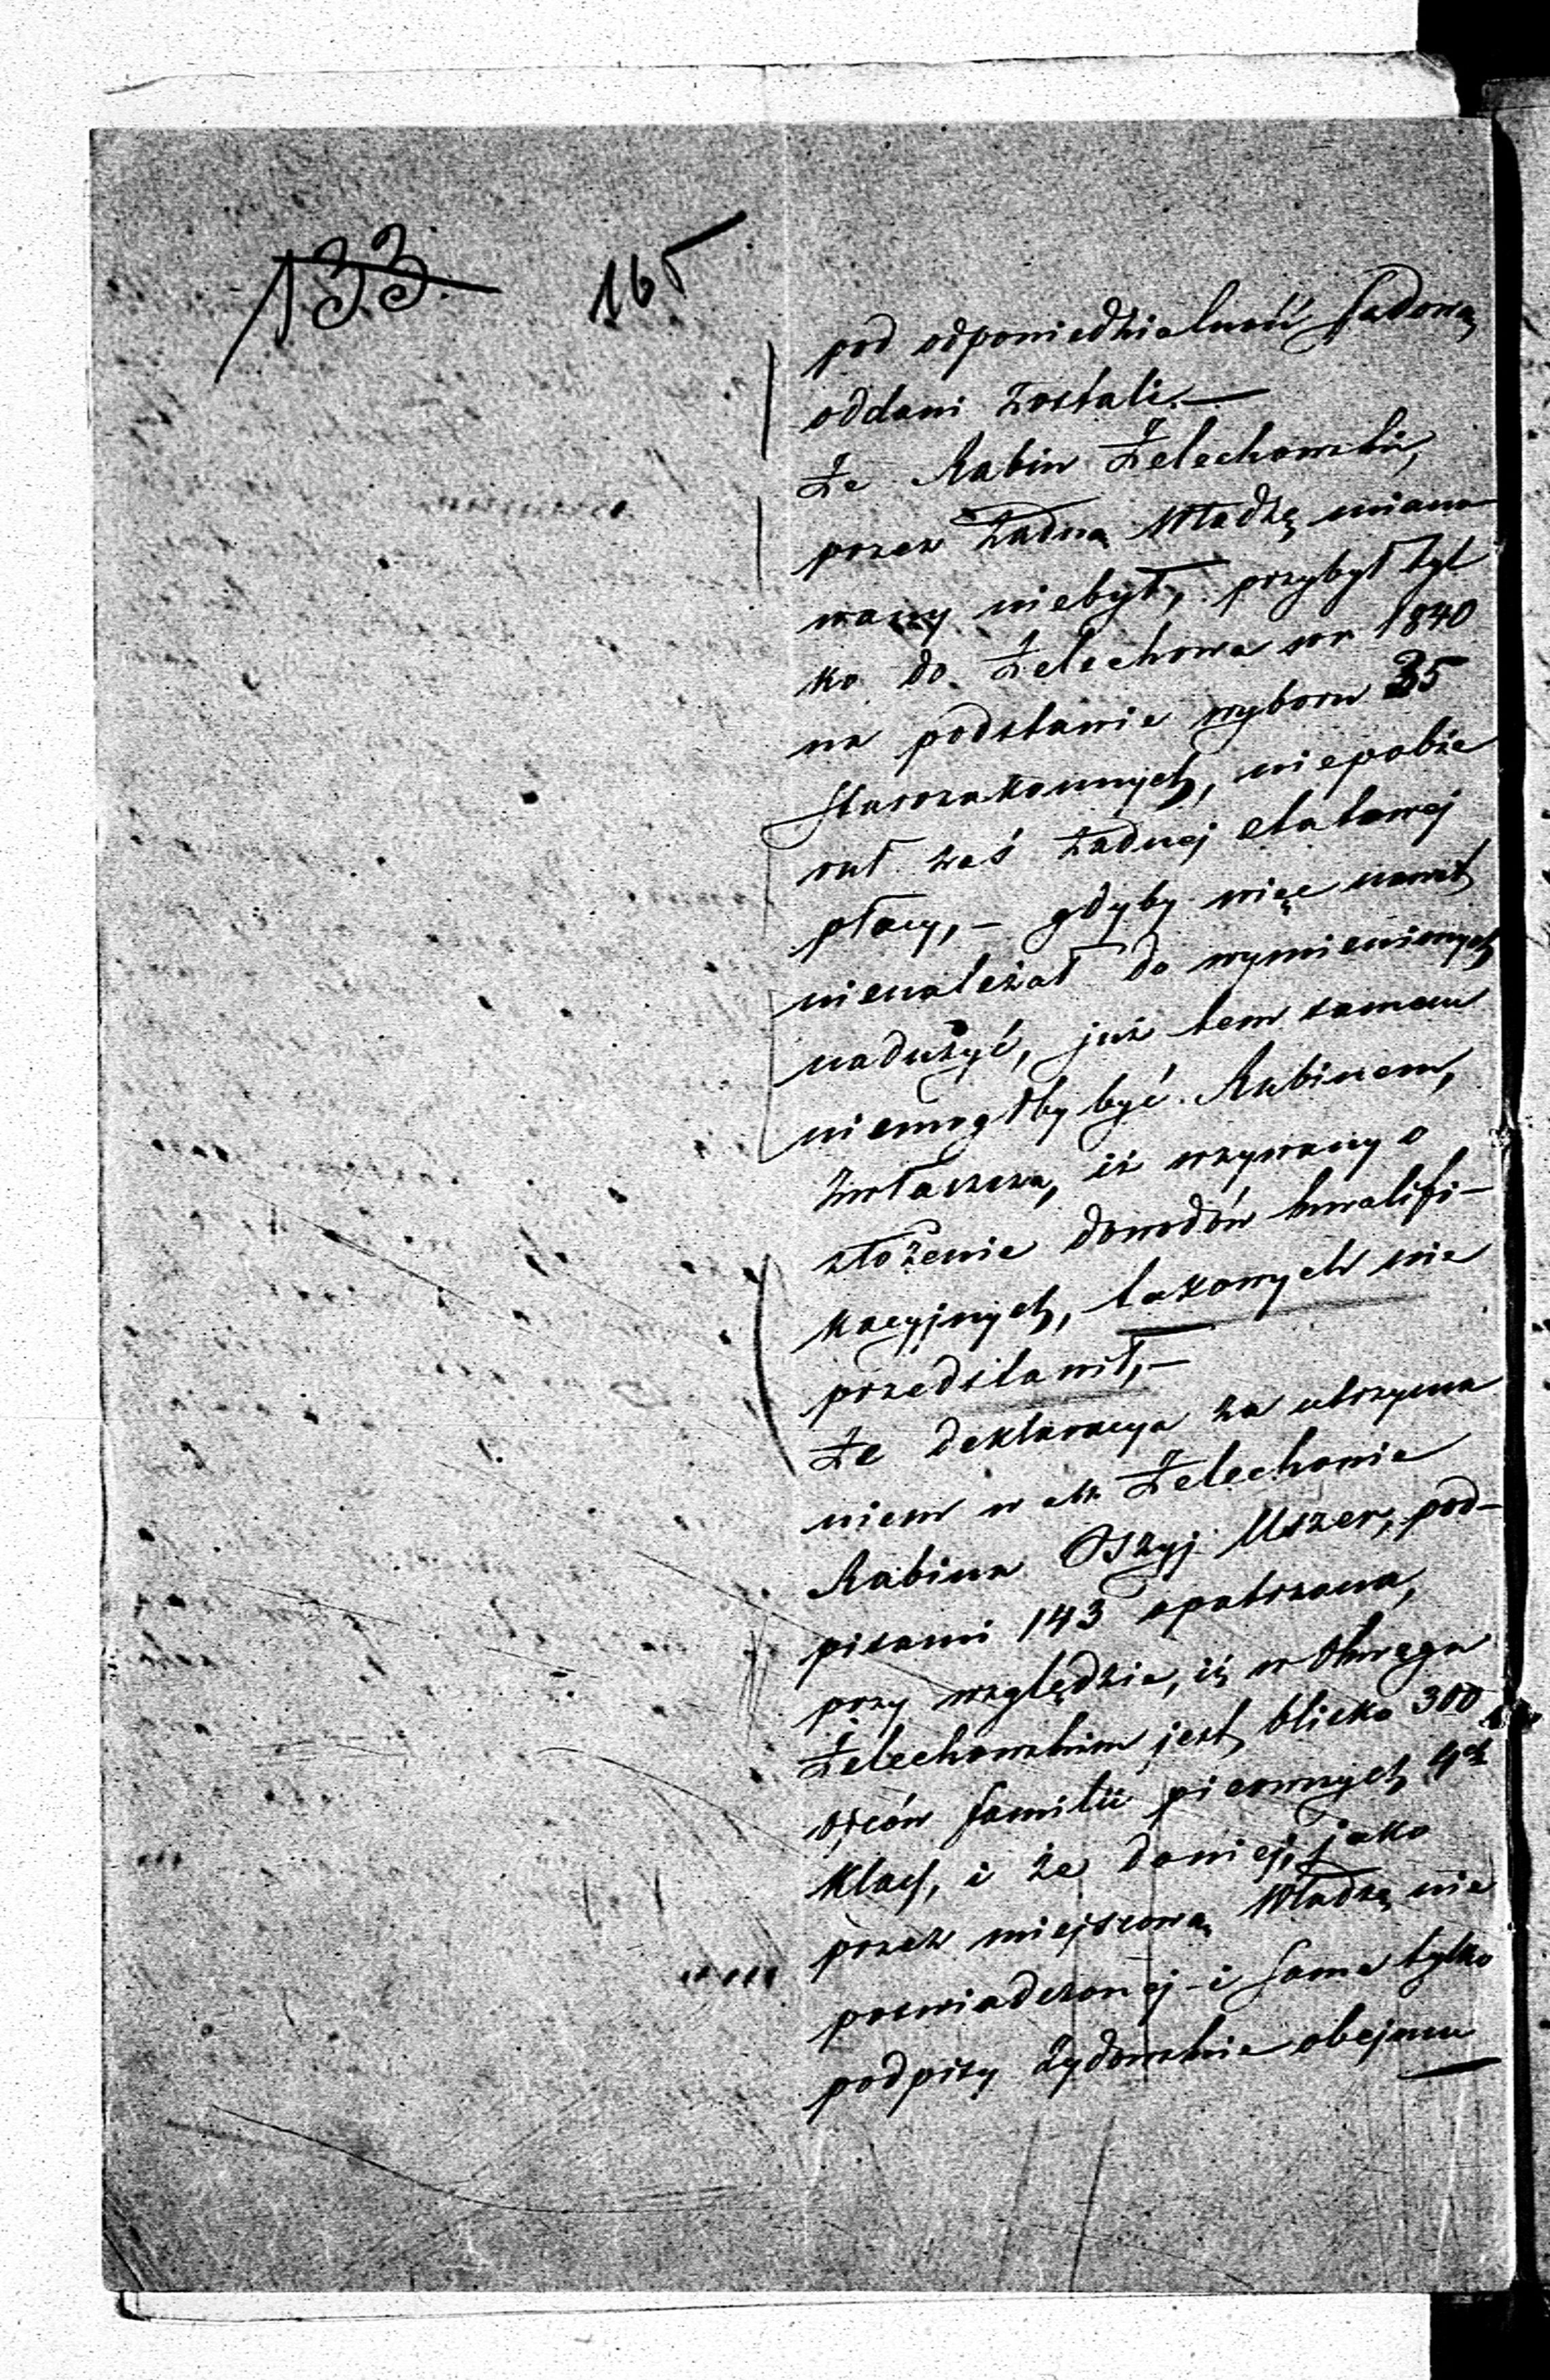 133
165
pod odpowiedzialność sądową
oddani zostali.—
Że Rabin Żelechowski,
przez żadną Władzę miano
wany niebył, przybył tyl
ko do Żelechowa w r 1840
na podstawie wyboru 35
starozakonnych, niepobie
rał zaś żadnej etatowej
płacy, – gdyby więc nawet
nienależał do wymienionych
nadużyć, już tem samem
niemógłby być Rabinem,
zwłaszcza, iż wzywany o
złożenie dowodów kwalifi–
kacyjnych, takowych nie
przedstawił,–
Że deklaracya za utrzyma
niem w Żelechowie
Rabina Oszyj Uszer, pod–
pisami 143 opatrzona,
przy względzie, iż w Okręgu
Żelechowskim jest blisko 300
ojców familii pierwszych 4ch
klass, i że takowej, jako
przez miejscową Władzę nie
poświadczonej – i same tylko
podpisy żydowskie obejmu